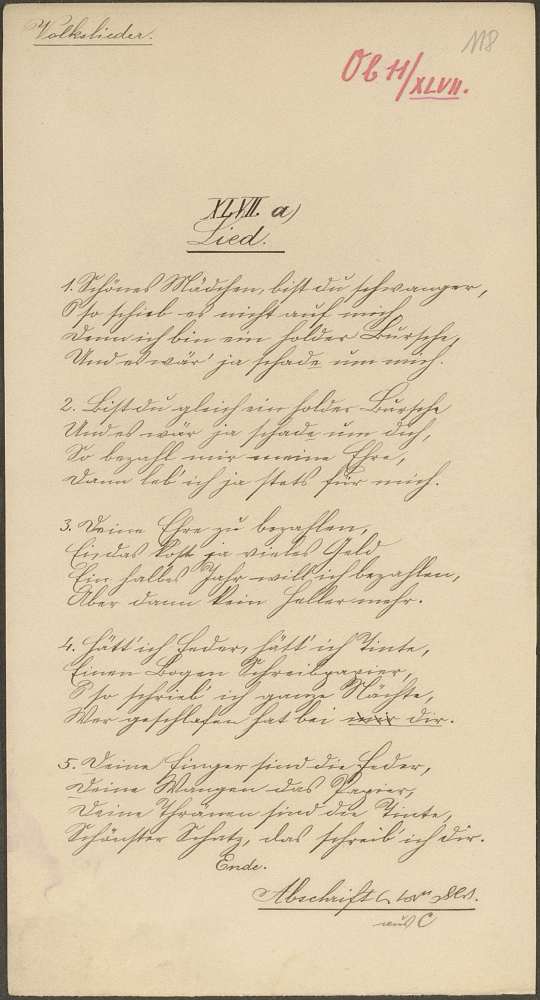 Volkslieder.
118
Ob 11/XLVII.
XLVII a)
Lied.
1. Schönes Mädchen, bist du schwanger,
S' so schieb es nicht auf mich,
Denn ich bin ein holder Bursche,
Und es wär' ja schade um mich.
2. Bist du gleich ein holder Bursche
Und es wär ja schade um dich,
So bezahl mir meine Ehre,
Dann leb' ich ja stets für mich.
3. Deine Ehre zu bezahlen,
Ei, das kost' ja vieles Geld,
Ein halbes Jahr will ich bezahlen,
Aber dann kein Heller mehr.
4. Hätt' ich Feder, hätt' ich Tinte,
Einen Bogen Schreibpapier,
S' so schrieb' ich ganze Nächte,
Wer geschlafen hat bei mir dir.
5. Deine Finger sind die Feder,
Deine Wangen das Papier,
Deine Thränen sind die Tinte,
Schönster Schatz, das schreib' ich dir.
Ende.
Abschrift
aus C